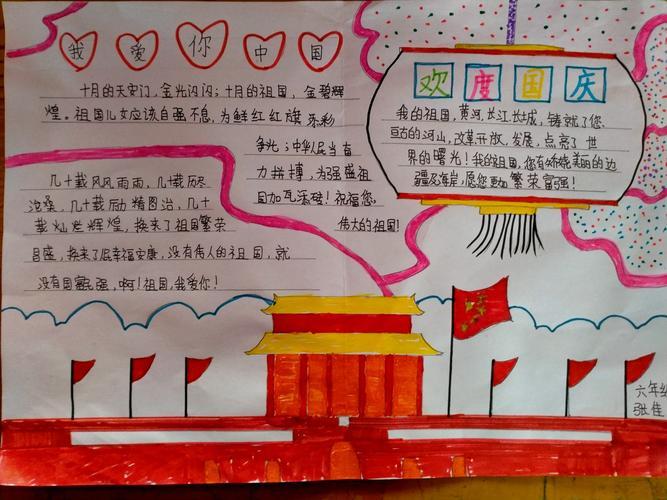 我爱你中国
十月的天安门，金光闪闪；十月的祖国，金碧辉
煌。祖国儿女应该自强不息，为鲜红红旗添彩
争光；中华民当奋
力拼搏，为强盛祖
国加瓦添砖！祝福您，
伟大的祖国！
几十载风风雨雨，几十载历尽
沧桑，几十载励精图治，几十
载灿烂辉煌，换来了祖国繁荣
昌盛，换来了民幸福安康，没有伟人的祖国，就
没有国富民强，啊！祖国，我爱你！
欢度国庆
我的祖国，黄河、长江、长城，铸就了您
亘古的河山，改革开放，发展，点亮了世
界的曙光！我的祖国，您有娇娆美丽的边
疆及海岸，愿您更加繁荣富强！
六年级
张佳